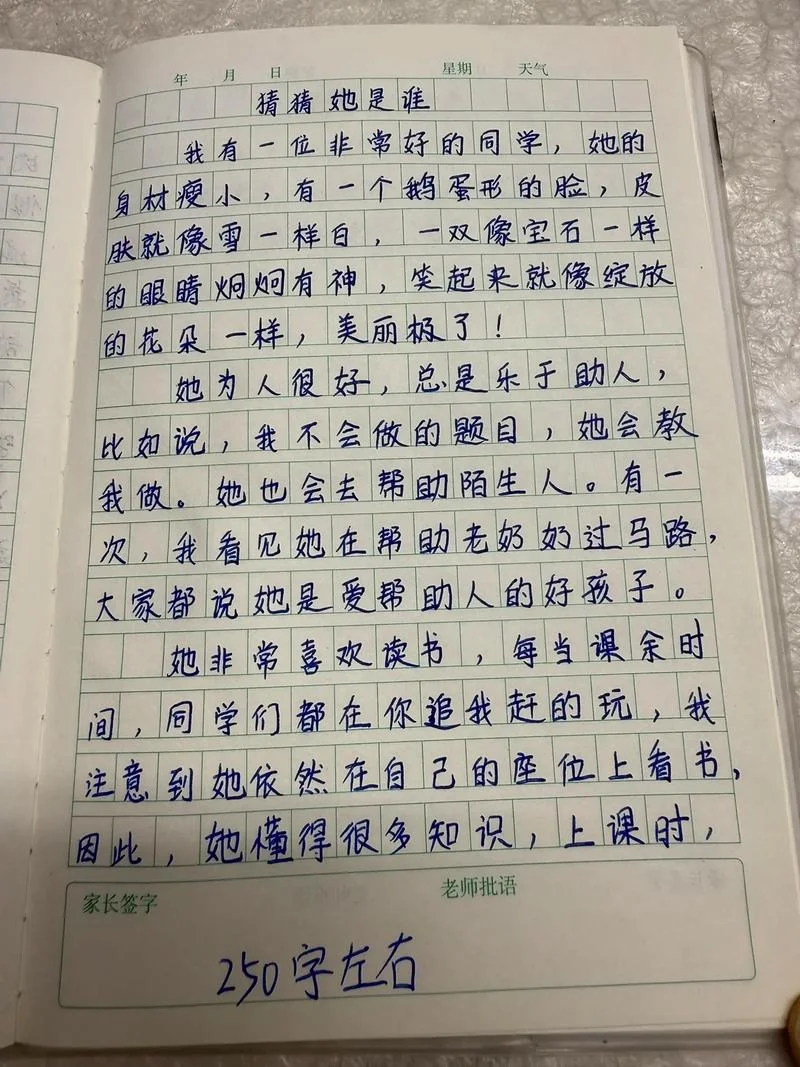 年 月 日 星期 天气
猜猜她是谁
我有一位非常好的同学，她的
身材瘦小，有一个鹅蛋形的脸，皮
肤就像雪一样白，一双像宝石一样
的眼睛炯炯有神，笑起来就像绽放
的花朵一样，美丽极了！
她为人很好，总是乐于助人，
比如说，我不会做的题目，她会教
我做。她也会去帮助陌生人。有一
次，我看见她在帮助老奶奶过马路，
大家都说她是爱帮助人的好孩子。
她非常喜欢读书，每当课余时
间，同学们都在你追我赶的玩，我
注意到她依然在自己的座位上看书，
因此，她懂得很多知识，上课时，
家长签字 老师批语
250字左右